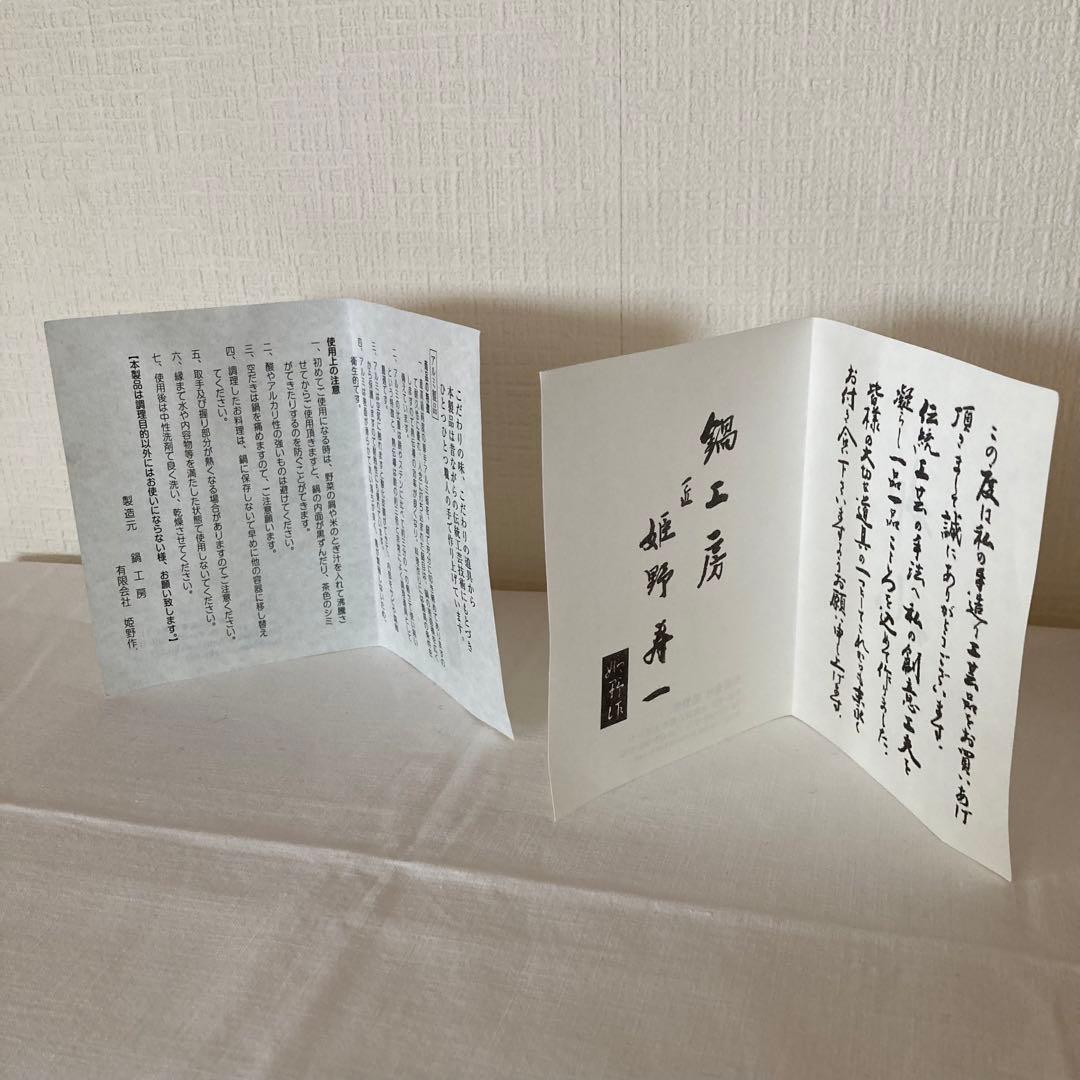 こだわりの味、こだわりの道具から
本製品は昔ながらの伝統工芸技術にもとづき
ひとつひとつ職人の手で作り上げています。
衛生的です。
使用上の注意
一、初めてご使用になる時は、野菜の屑や米のとぎ汁を入れて沸騰さ
せてからご使用頂きますと、鍋の内面が黒ずんだり、茶色のシミ
ができたりするのを防ぐことができます。
二、酸やアルカリ性の強いものは避けてください。
三、空だきは鍋を痛めますので、ご注意願います。
四、調理したお料理は、鍋に保存しないで早めに他の容器に移し替え
てください。
五、取手及び握り部分が熱くなる場合がありますのでご注意ください。
六、縁まで水や内容物等を満たした状態で使用しないでください。
七、使用後は中性洗剤で良く洗い、乾燥させてください。
【本製品は調理目的以外にはお使いにならない様、お願い致します。】
製造元 鍋工房
有限会社 姫野作.
この度は私の手造り工芸品をお買いあげ
頂きまして誠にありがとうございます。
伝統工芸の手法へ私の創意工夫を
凝らし一品一品こころを込めて作りました。
皆様の大切な道具の一つとしていつまでも末永く
お付き合い下さいますようお願い申し上げます。
鍋工房
匠 姫野寿一
姫野作